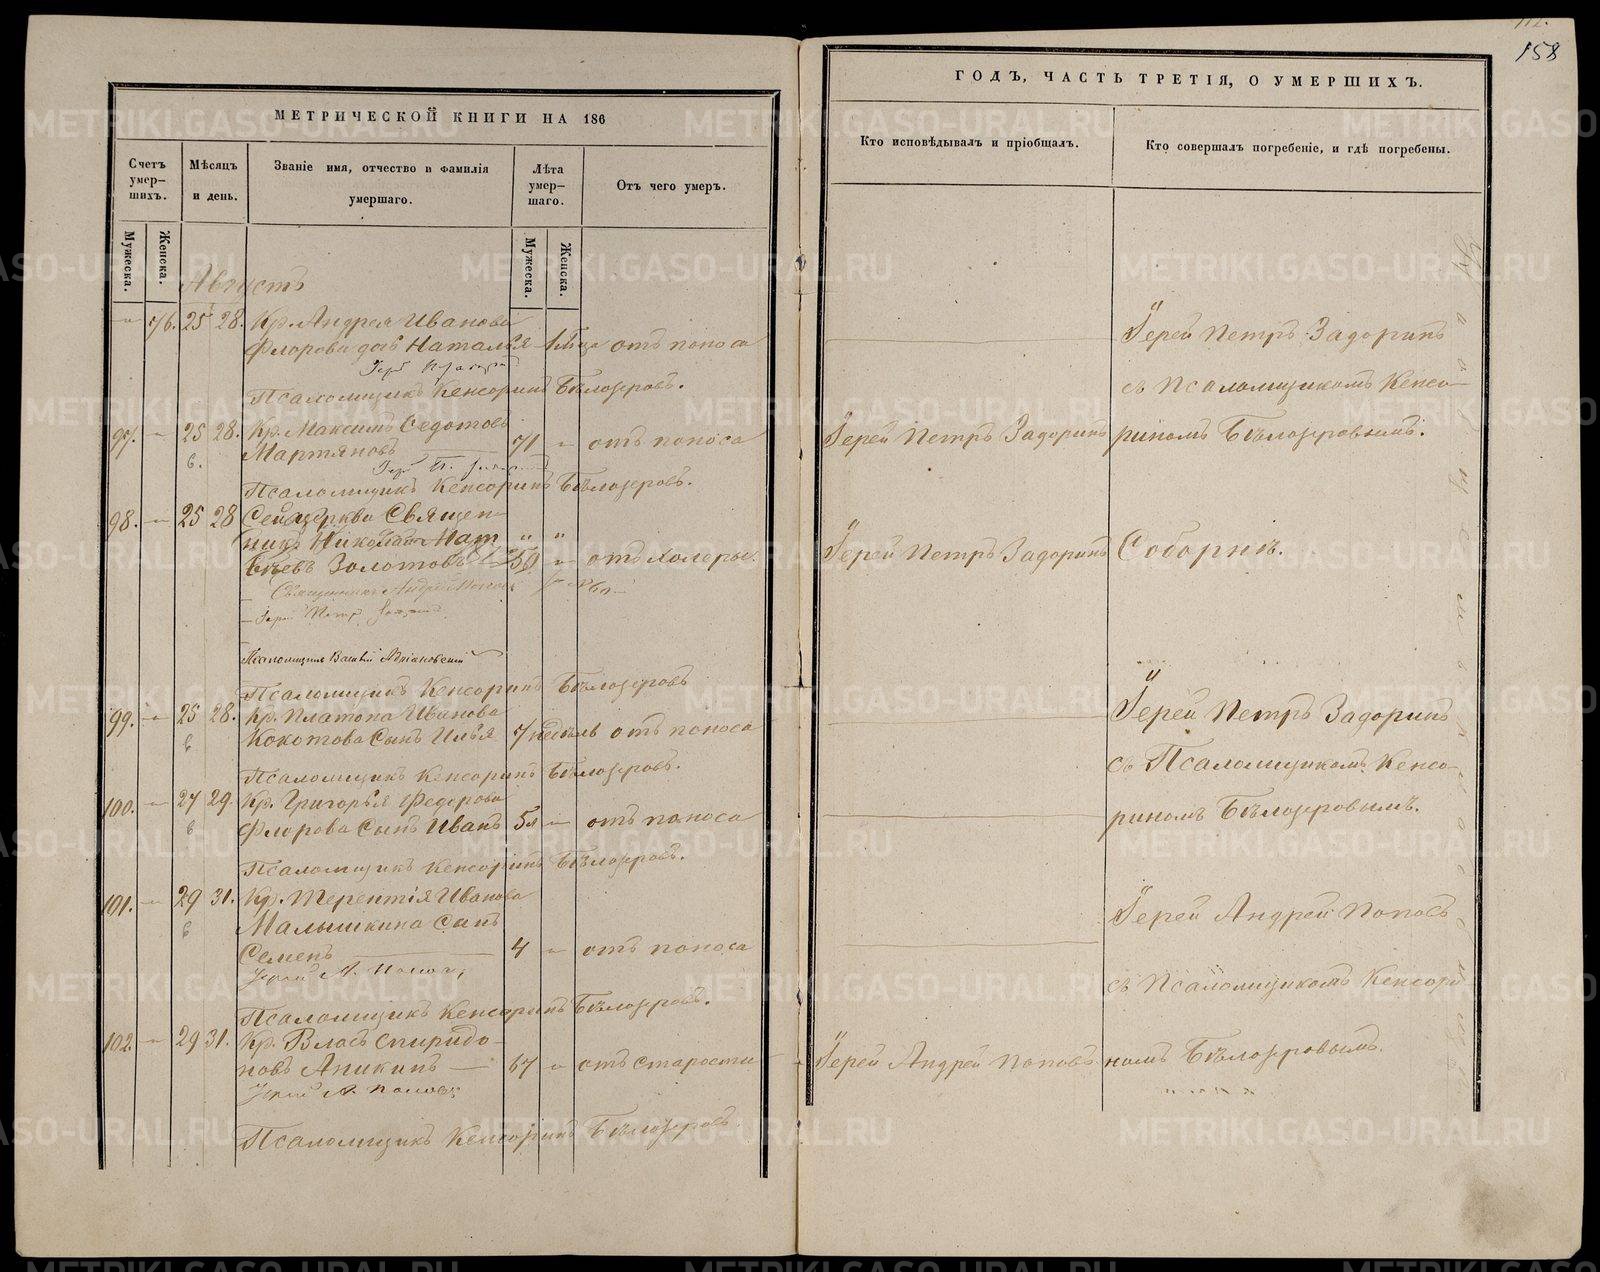 158
МЕТРИЧЕСКОЙ КНИГИ НА 186
Счетъ умер—шихъ.
Мѣсяцъ и день.
Званіе имя, отчество и фамилія умершаго.
Лѣта умер—шаго.
Отъ чего умеръ.
Мужеска.
Женска.
Мужеска.
Женска.
Августъ
76. 25 28. Кр. Андрея Иванова
Флорова дочь Наталья отъ поноса
Псаломщикъ Кенсоринъ Бѣлозеровъ.
97. 25 28. Кр. Максимъ Седотовъ
Мартяновъ 71 отъ поноса
Псаломщикъ Кенсоринъ Бѣлозеровъ.
98. 25 28 Сей церкви Священ-
никъ Николай Мат
ѣевъ Золотовъ 50 отъ холеры.
Священникъ Андрей Поповъ
Іерей Петръ Задоринъ
Псаломщикъ Василій Адріановскій
Псаломщикъ Кенсоринъ Бѣлозеровъ
99. 25 28. Кр. Платона Иванова
Кокотова Сынъ Илья 7 недѣль отъ поноса
Псаломщикъ Кенсоринъ Бѣлозеровъ.
100. 27 29. Кр. Григорья Федорова
Флорова Сынъ Иванъ 5 отъ поноса
Псаломщикъ Кенсоринъ Бѣлозеровъ.
101. 29 31. Кр. Терентія Иванова
Малышкина Сынъ
Семенъ 4 отъ поноса
Іерей А. Поповъ
Псаломщикъ Кенсоринъ Бѣлозеровъ.
102. 29 31. Кр. Власъ Спиридо-
новъ Аникинъ 67 отъ старости
Іерей А. Поповъ
Псаломщикъ Кенсоринъ Бѣлозеровъ.
ГОДЪ, ЧАСТЬ ТРЕТІЯ, О УМЕРШИХЪ.
Кто исповѣдывалъ и пріобщалъ.
Кто совершалъ погребеніе, и гдѣ погребены.
Іерей Петръ Задоринъ
съ Псаломщикомъ Кенсо-
Іерей Петръ Задоринъ риномъ Бѣлозеровымъ.
Іерей Петръ Задоринъ Соборнѣ.
Іерей Петръ Задоринъ
съ Псаломщикомъ Кенсо-
риномъ Бѣлозеровымъ.
Іерей Андрей Поповъ
съ Псаломщикомъ Кенсори
Іерей Андрей Поповъ номъ Бѣлозеровымъ.
METRIKI.GASO-URAL.RU